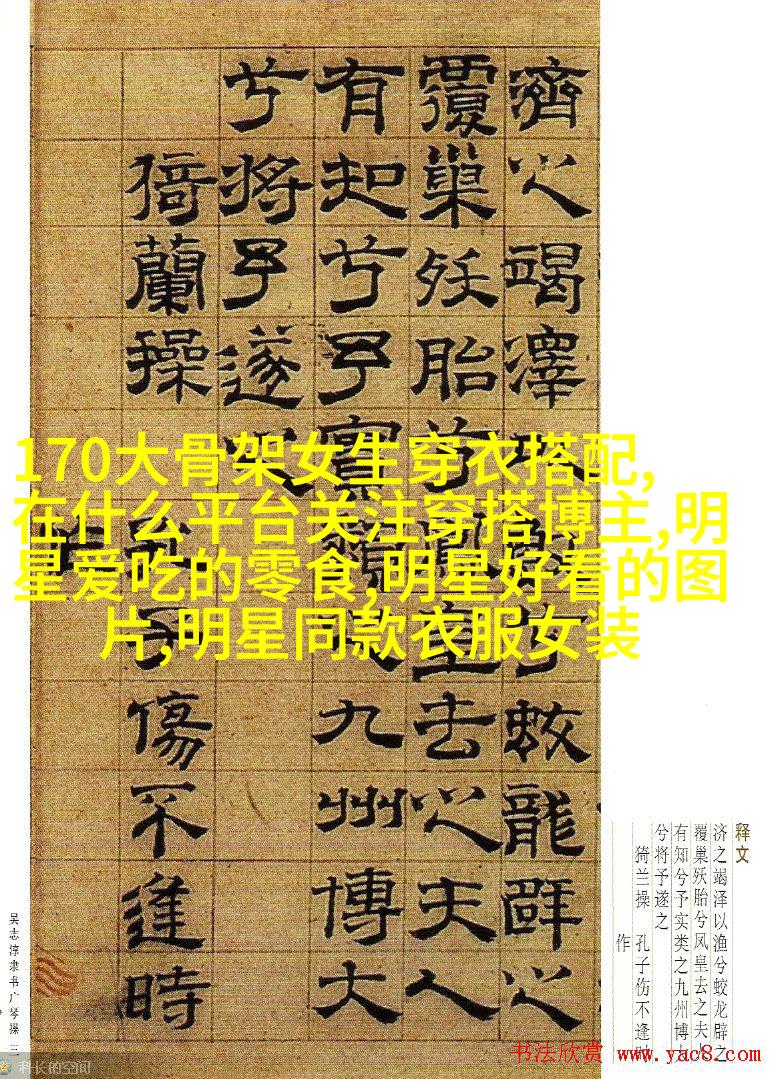 170大骨架女生穿衣搭配,
在什么平台关注穿搭博主,明
星爱吃的零食,明星好看的图
片,明星同款衣服女装
濟之竭澤以漁兮蛟龍辟之
覆巢殀胎兮鳳皇去之夫人
有知兮予實類之九州博大
兮將予遂之
猗蘭操 孔子傷不逢時
作
释文
济之竭泽以渔兮蛟龙辟之
覆巢殀胎兮凤皇去之夫人
有知兮予实类之九州博大
兮将予遂之
猗兰操 孔子伤不逢时
作
吴志淳隶书广琴操 三
科长的空间
书法欣赏 www.yac8.com